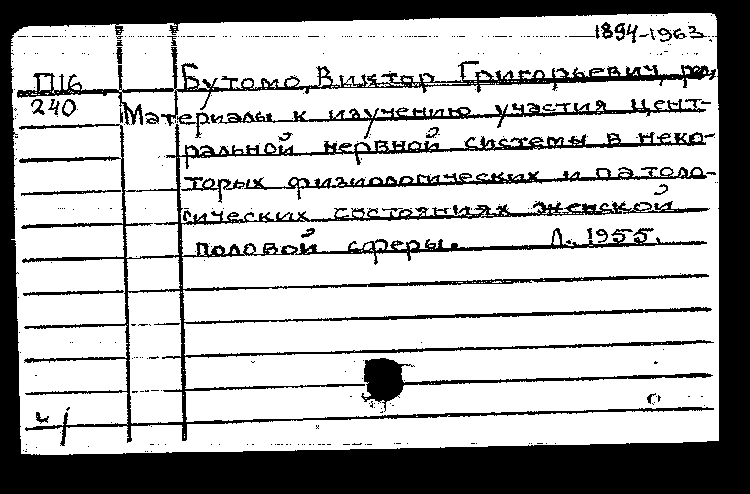 1894-1963.
П16
240
Бутомо, Виктор Григорьевич,
Материалы к изучению участия цент-
ральной нервной системы в неко-
торых физиологических и патоло-
гических состояниях женской
половой сферы. Л., 1955.